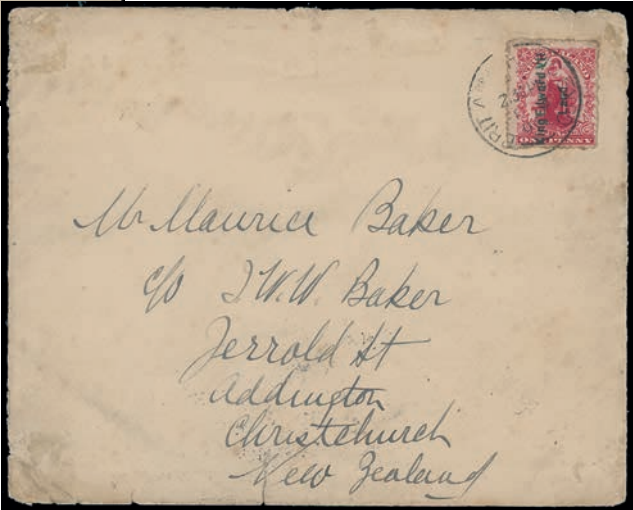 BRIT
King Edward VII
Land
ONE PENNY
Mr Maurice Baker
c/o J.W.W. Baker
Jerrold St
Addington
Christchurch
New Zealand